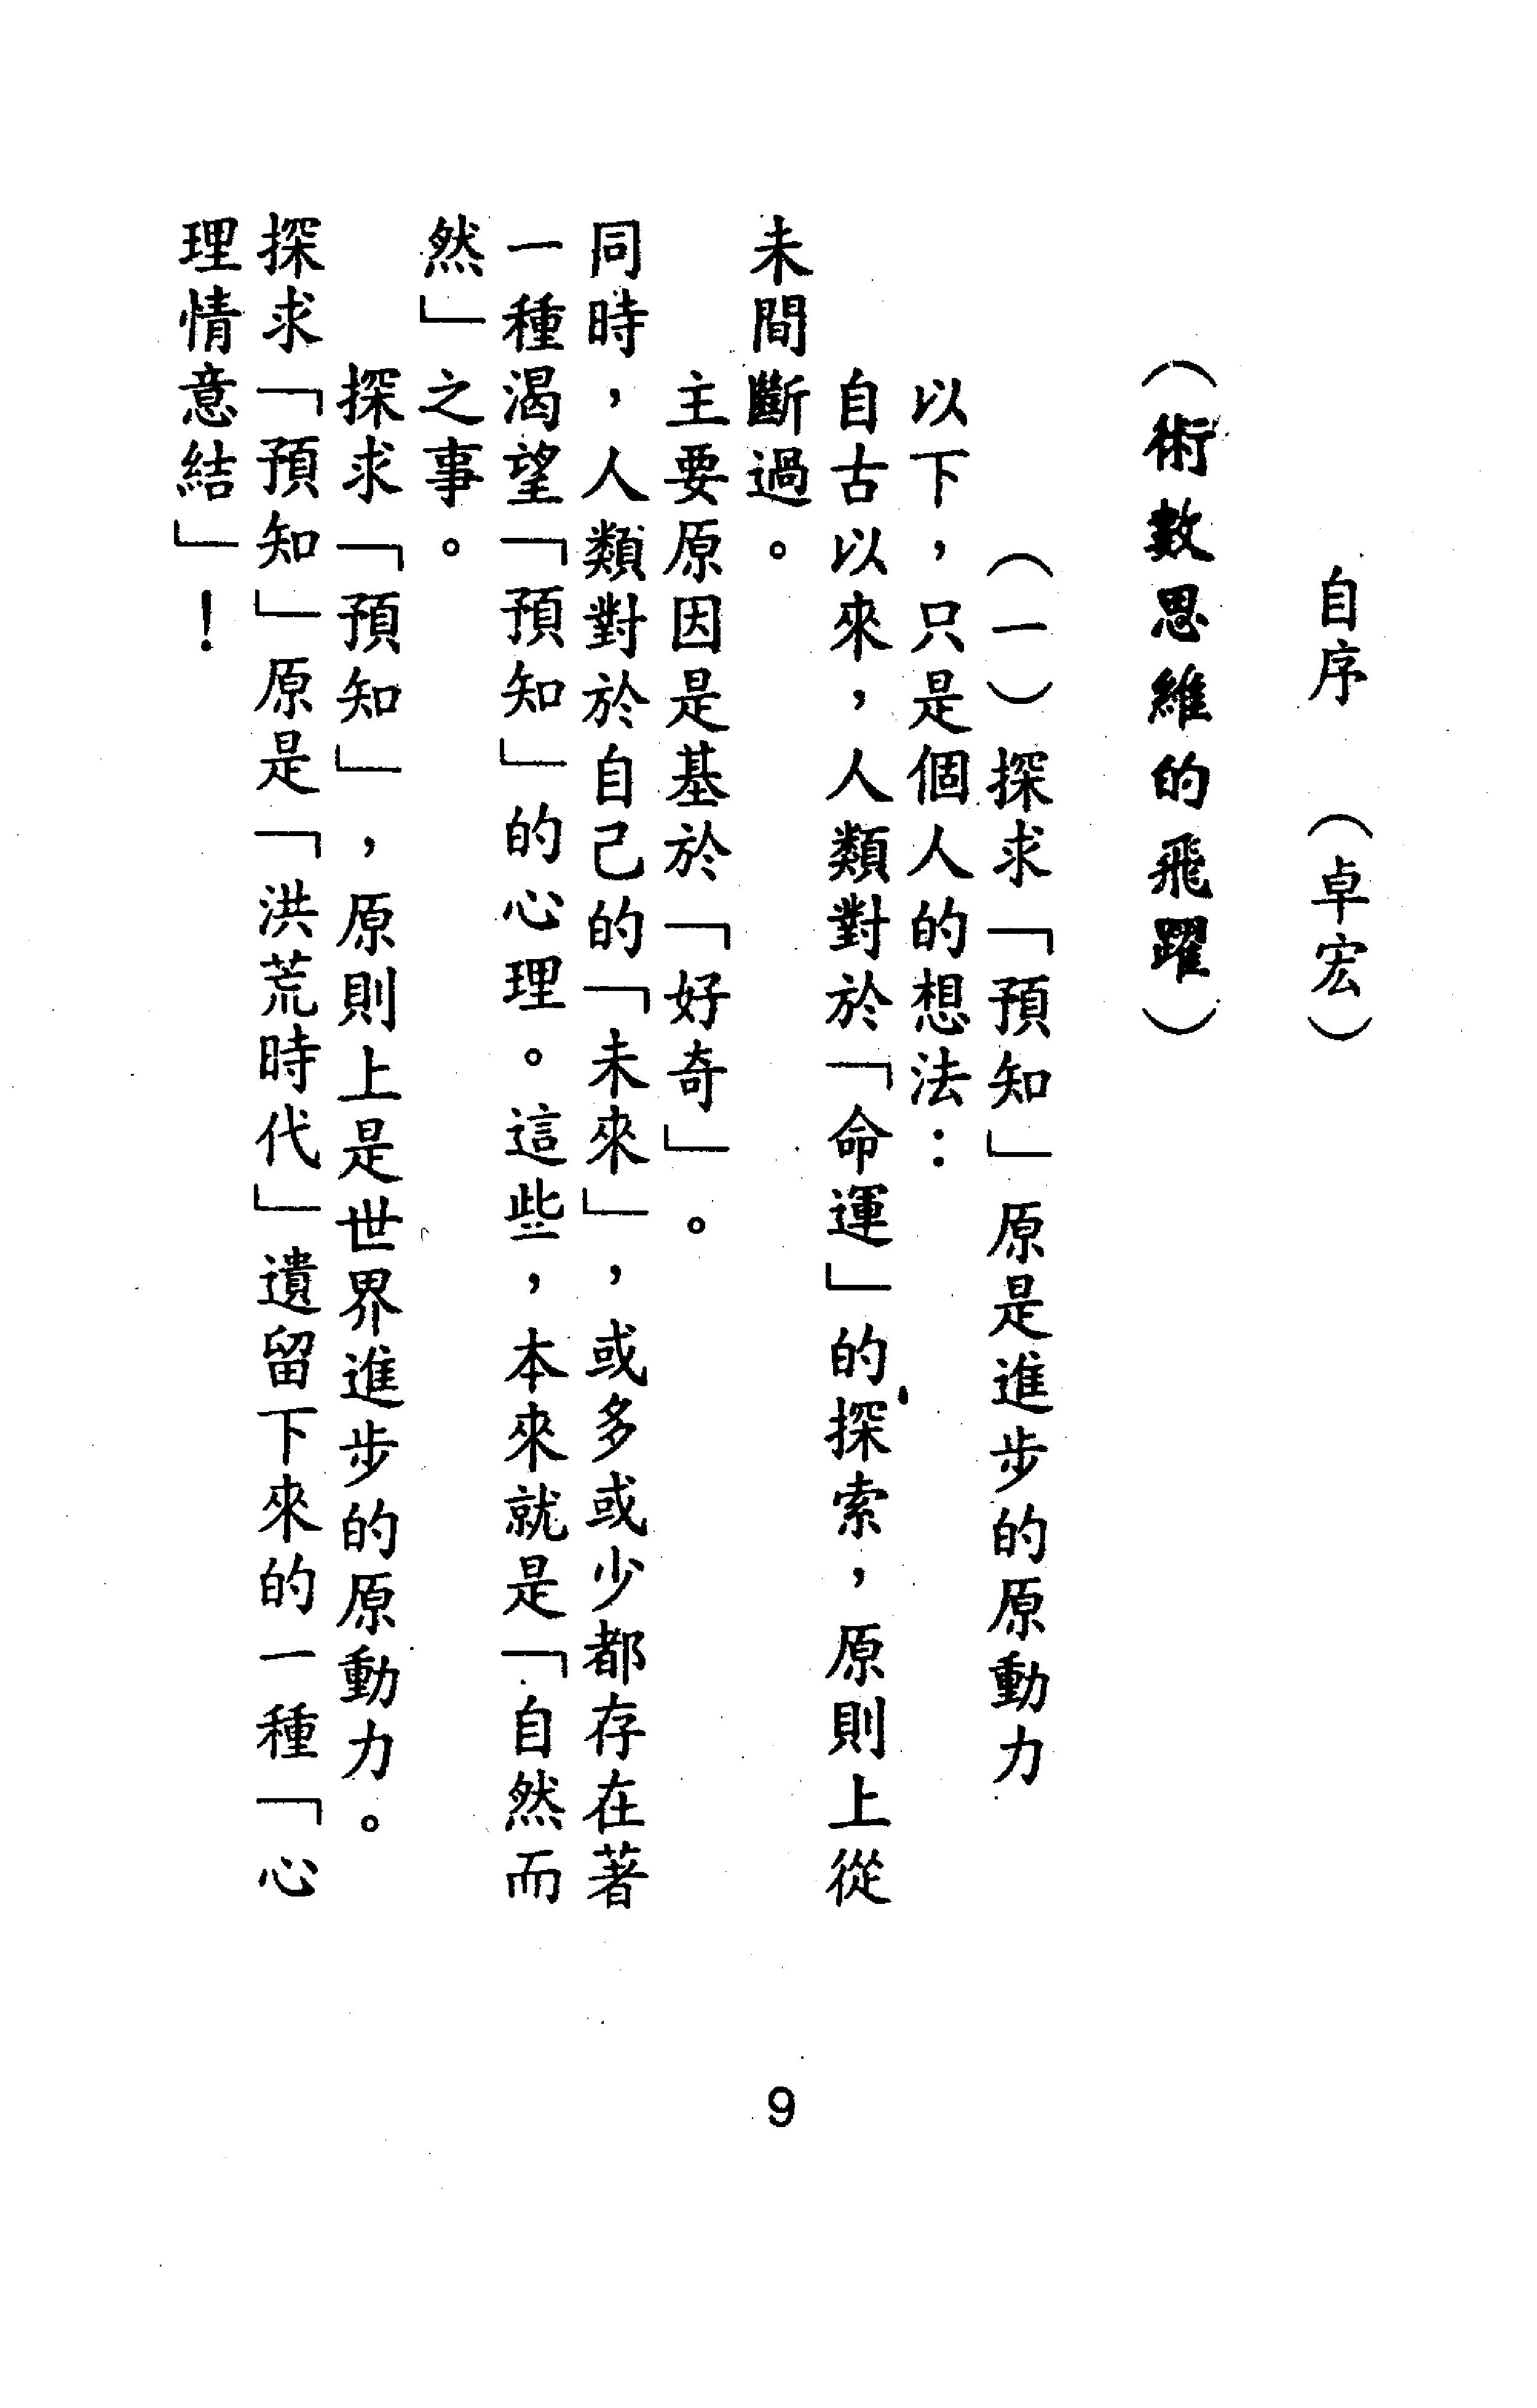 自序　（卓宏）
（術數思維的飛躍）
（一）探求「預知」原是進步的原動力
以下，只是個人的想法：
自古以來，人類對於「命運」的探索，原則上從
未間斷過。
主要原因是基於「好奇」。
同時，人類對於自己的「未來」，或多或少都存在著
一種渴望「預知」的心理。這些，本來就是「自然而
然」之事。
探求「預知」，原則上是世界進步的原動力。
探求「預知」原是「洪荒時代」遺留下來的一種「心
理情意結」！
9